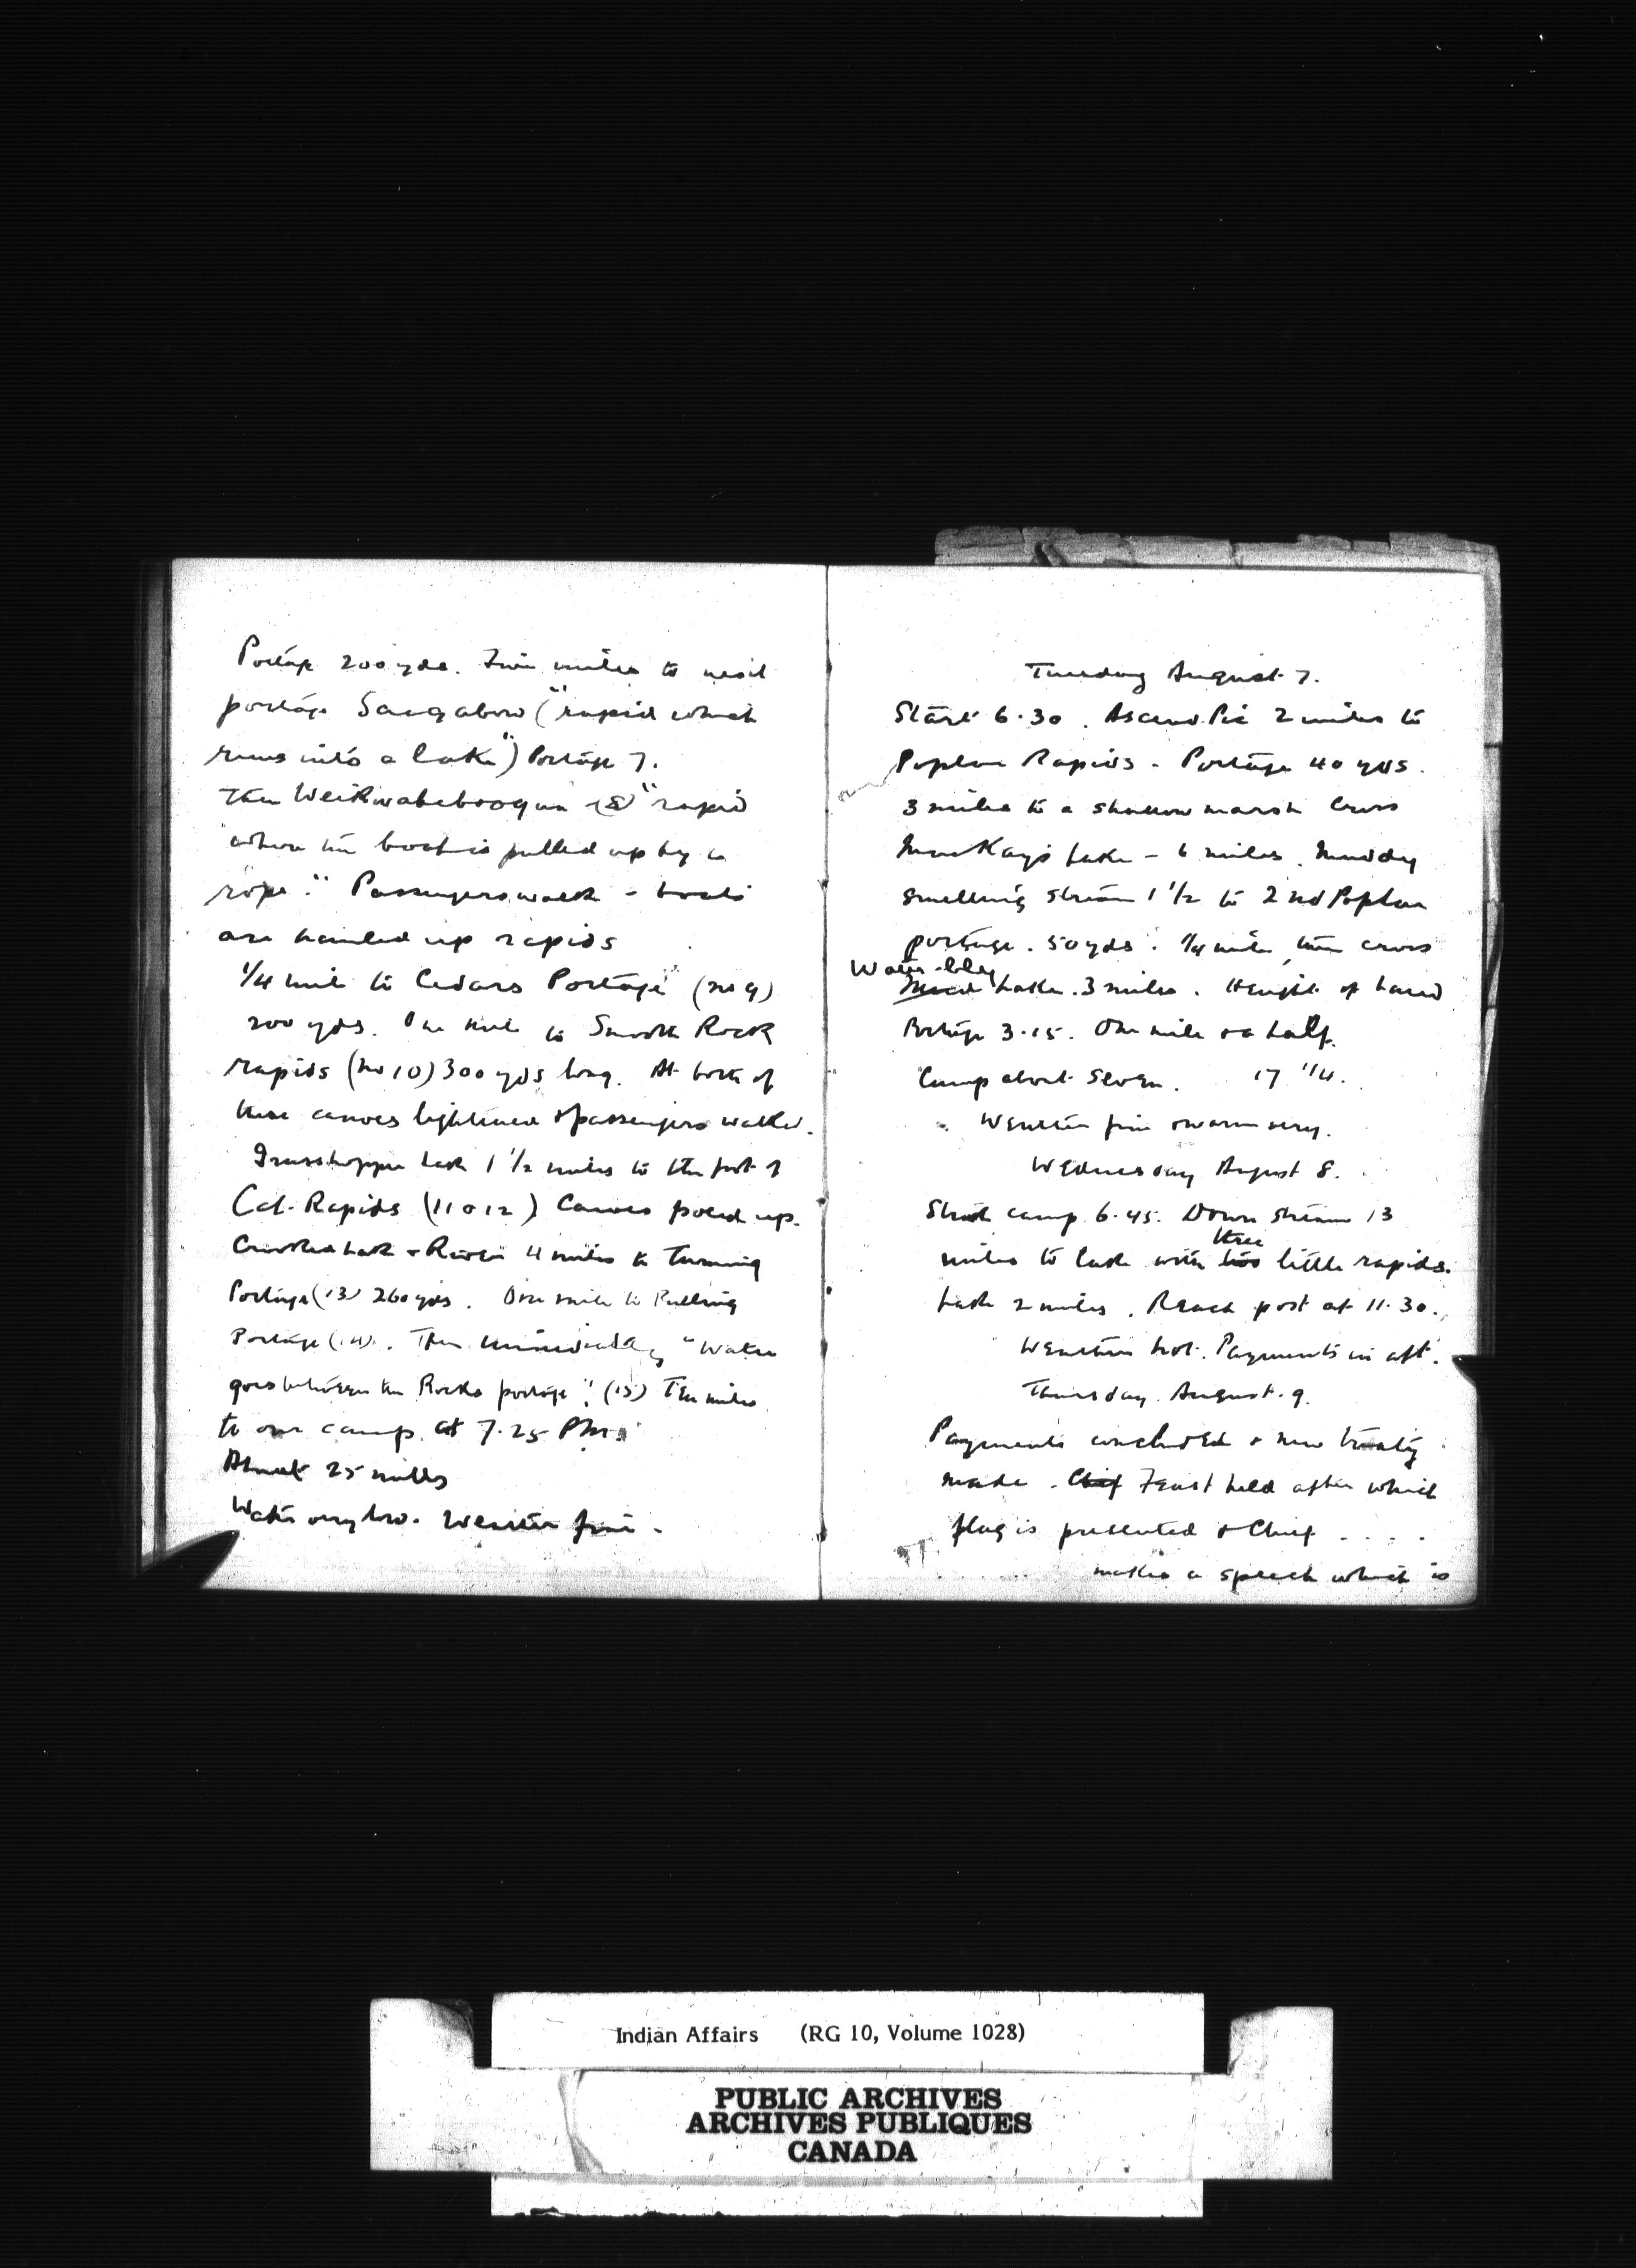 Portage 200 yds. Five miles to next
portage Saugabow ("rapid which
runs into a lake") Portage 7.
Then Weikwabeboogun (8) "rapid
where the boat is pulled up by a
rope". Passengers walk - boats
are hauled up rapids
1/4 mile to Cedars Portage (no 9)
200 yds. One mile to Smooth Rock
rapids (no 10) 300 yds long. At both of
these canoes lightened & passengers walked.
Grasshopper Lake 1 1/2 miles to the foot of
Cat Rapids (11 & 12) Canoes poled up.
Crooked Lake & River 4 miles to Turning
Portage (13) 260 yds. One mile to Pulling
Portage (14). Then immediately "Water
goes between the Rocks portage". (15) Ten miles
to our camp. at 7.25 PM.
About 25 miles
Water very low. Weather fine.
Tuesday August 7.
Start 6.30. Ascend Pic 2 miles to
Poplar Rapids - Portage 40 yds.
3 miles to a shallow marsh Cross
MacKays Lake - 6 miles. Muddy
smelling stream 1 1/2 to 2nd Poplar
portage. 50 yds. 1/4 mile, then cross
Water-lily
Lake. 3 miles. Height of Land
Portage 3.15. One mile & a half.
Camp about Seven. 17 1/4.
Weather fine & warm very.
Wednesday August 8.
Struck camp 6.45. Down stream 13
three
miles to lake with two little rapids.
Lake 2 miles. Reach post at 11.30.
Weather hot. Payments in aft.
Thursday. August. 9.
Payments concluded & new treaty
made. Chief Feast held after which
flag is presented & Chief . . . .
makes a speech which is
Indian Affairs (RG 10, Volume 1028)
PUBLIC ARCHIVES
ARCHIVES PUBLIQUES
CANADA